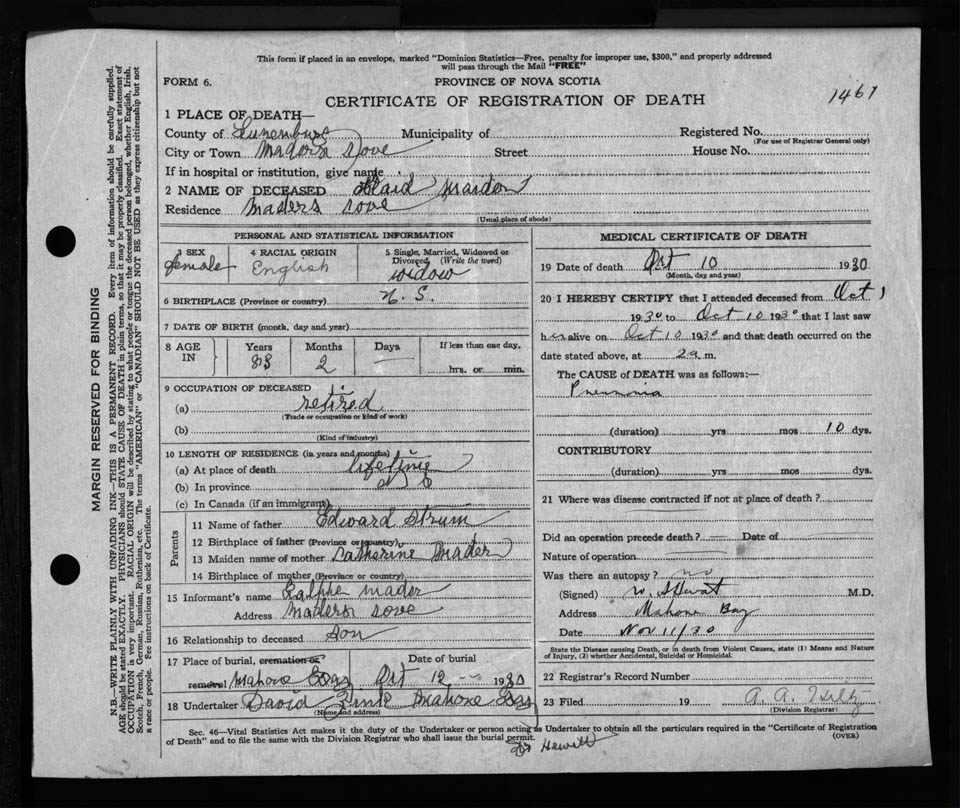 This form if placed in an envelope, marked "Dominion Statistics—Free, penalty for improper use, $300," and properly addressed
will pass through the Mail "FREE"
FORM 6.
PROVINCE OF NOVA SCOTIA
CERTIFICATE OF REGISTRATION OF DEATH
1461
1 PLACE OF DEATH—
County of Lunenburg Municipality of Registered No.
(For use of Registrar General only)
City or Town Maders Cove Street House No.
If in hospital or institution, give name
2 NAME OF DECEASED
Residence Maders Cove
(Usual place of abode)
PERSONAL AND STATISTICAL INFORMATION
3 SEX female
4 RACIAL ORIGIN English
5 Single, Married, Widowed or Divorced (Write the word) widow
6 BIRTHPLACE (Province or country) N. S.
7 DATE OF BIRTH (month, day and year)
8 AGE IN Years 83 Months 2 Days — If less than one day, hrs. or min.
9 OCCUPATION OF DECEASED
(a) retired
(Trade or occupation or kind of work)
(b)
(Kind of industry)
10 LENGTH OF RESIDENCE (in years and months)
(a) At place of death life time
(b) In province
(c) In Canada (if an immigrant)
Parents
11 Name of father Edward Strum
12 Birthplace of father (Province or country)
13 Maiden name of mother Catherine Mader
14 Birthplace of mother (Province or country)
15 Informant's name Ralphe Mader
Address Maders Cove
16 Relationship to deceased Son
17 Place of burial, cremation or removal Mahone Bay Date of burial Oct 12 1930
18 Undertaker David Zink Mahone Bay
(Name and address)
MEDICAL CERTIFICATE OF DEATH
19 Date of death Oct 10 1930
(Month, day and year)
20 I HEREBY CERTIFY that I attended deceased from Oct 1
1930 to Oct 10 1930 that I last saw
her alive on Oct 10 1930 and that death occurred on the
date stated above, at 2 a m.
The CAUSE of DEATH was as follows:—
(duration) yrs mos 10 dys.
CONTRIBUTORY
(duration) yrs mos dys.
21 Where was disease contracted if not at place of death?
Did an operation precede death? — Date of —
Nature of operation
Was there an autopsy? no
(Signed) M.D.
Address Mahone Bay
Date Nov 11/30
State the Disease causing Death, or in death from Violent Causes, state (1) Means and Nature
of Injury, (2) whether Accidental, Suicidal or Homicidal.
22 Registrar's Record Number
23 Filed 19
(Division Registrar)
Sec. 46—Vital Statistics Act makes it the duty of the Undertaker or person acting as Undertaker to obtain all the particulars required in the "Certificate of Registration
of Death" and to file the same with the Division Registrar who shall issue the burial permit.
(OVER)
Hewitt
MARGIN RESERVED FOR BINDING
N.B—WRITE PLAINLY WITH UNFADING INK—THIS IS A PERMANENT RECORD. Every item of information should be carefully supplied.
AGE should be stated EXACTLY. PHYSICIANS should STATE CAUSE OF DEATH in plain terms, so that it may be properly classified. Exact statement of
OCCUPATION is very important. RACIAL ORIGIN will be described by stating to what people or tongue the deceased person belonged, whether English, Irish,
Scotch, French, German, Russian, Ruthenian, etc. The terms "AMERICAN" or "CANADIAN" SHOULD NOT BE USED as they express citizenship but not
a race or people. Fee instructions on back of Certificate.